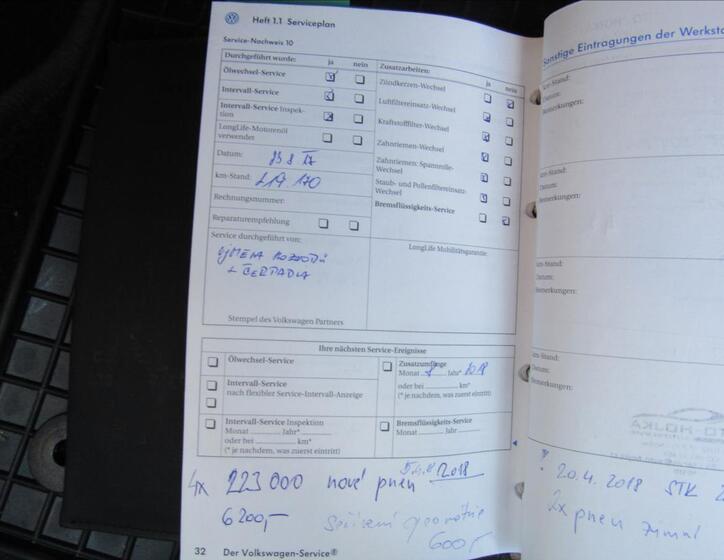 Heft 1.1 Serviceplan
Service-Nachweis 10
Durchgeführt wurde: ja nein
Ölwechsel-Service
Intervall-Service
Intervall-Service Inspek-
tion
LongLife-Motorenöl
verwendet
Datum:
km-Stand: 217.170
Rechnungsnummer:
Reparaturempfehlung
Service durchgeführt von:
VÝMĚNA ROZVODŮ
+ ČERPADLA
Stempel des Volkswagen Partners
Zusatzarbeiten: ja nein
Zündkerzen-Wechsel
Luftfiltereinsatz-Wechsel
Kraftstofffilter-Wechsel
Zahnriemen-Wechsel
Zahnriemen: Spannrolle-
Wechsel
Staub- und Pollenfiltereinsatz-
Wechsel
Bremsflüssigkeits-Service
LongLife Mobilitätsgarantie
Ihre nächsten Service-Ereignisse
Ölwechsel-Service
Intervall-Service
nach flexibler Service-Intervall-Anzeige
Intervall-Service Inspektion
Monat Jahr*
oder bei km*
(* je nachdem, was zuerst eintritt)
Zusatzumfänge
Monat 8 Jahr* 2018
oder bei km*
(* je nachdem, was zuerst eintritt)
Bremsflüssigkeits-Service
Monat Jahr
4x 223 000 nové pneu 2018
6200,-
Seřízení geometrie
600,-
32 Der Volkswagen-Service®
Sonstige Eintragungen der Werksta
km-Stand:
Datum:
Bemerkungen:
km-Stand:
Datum:
Bemerkungen:
km-Stand:
Datum:
Bemerkungen:
km-Stand:
Datum:
Bemerkungen:
20.4. 2018 STK 2
2x pneu zimní